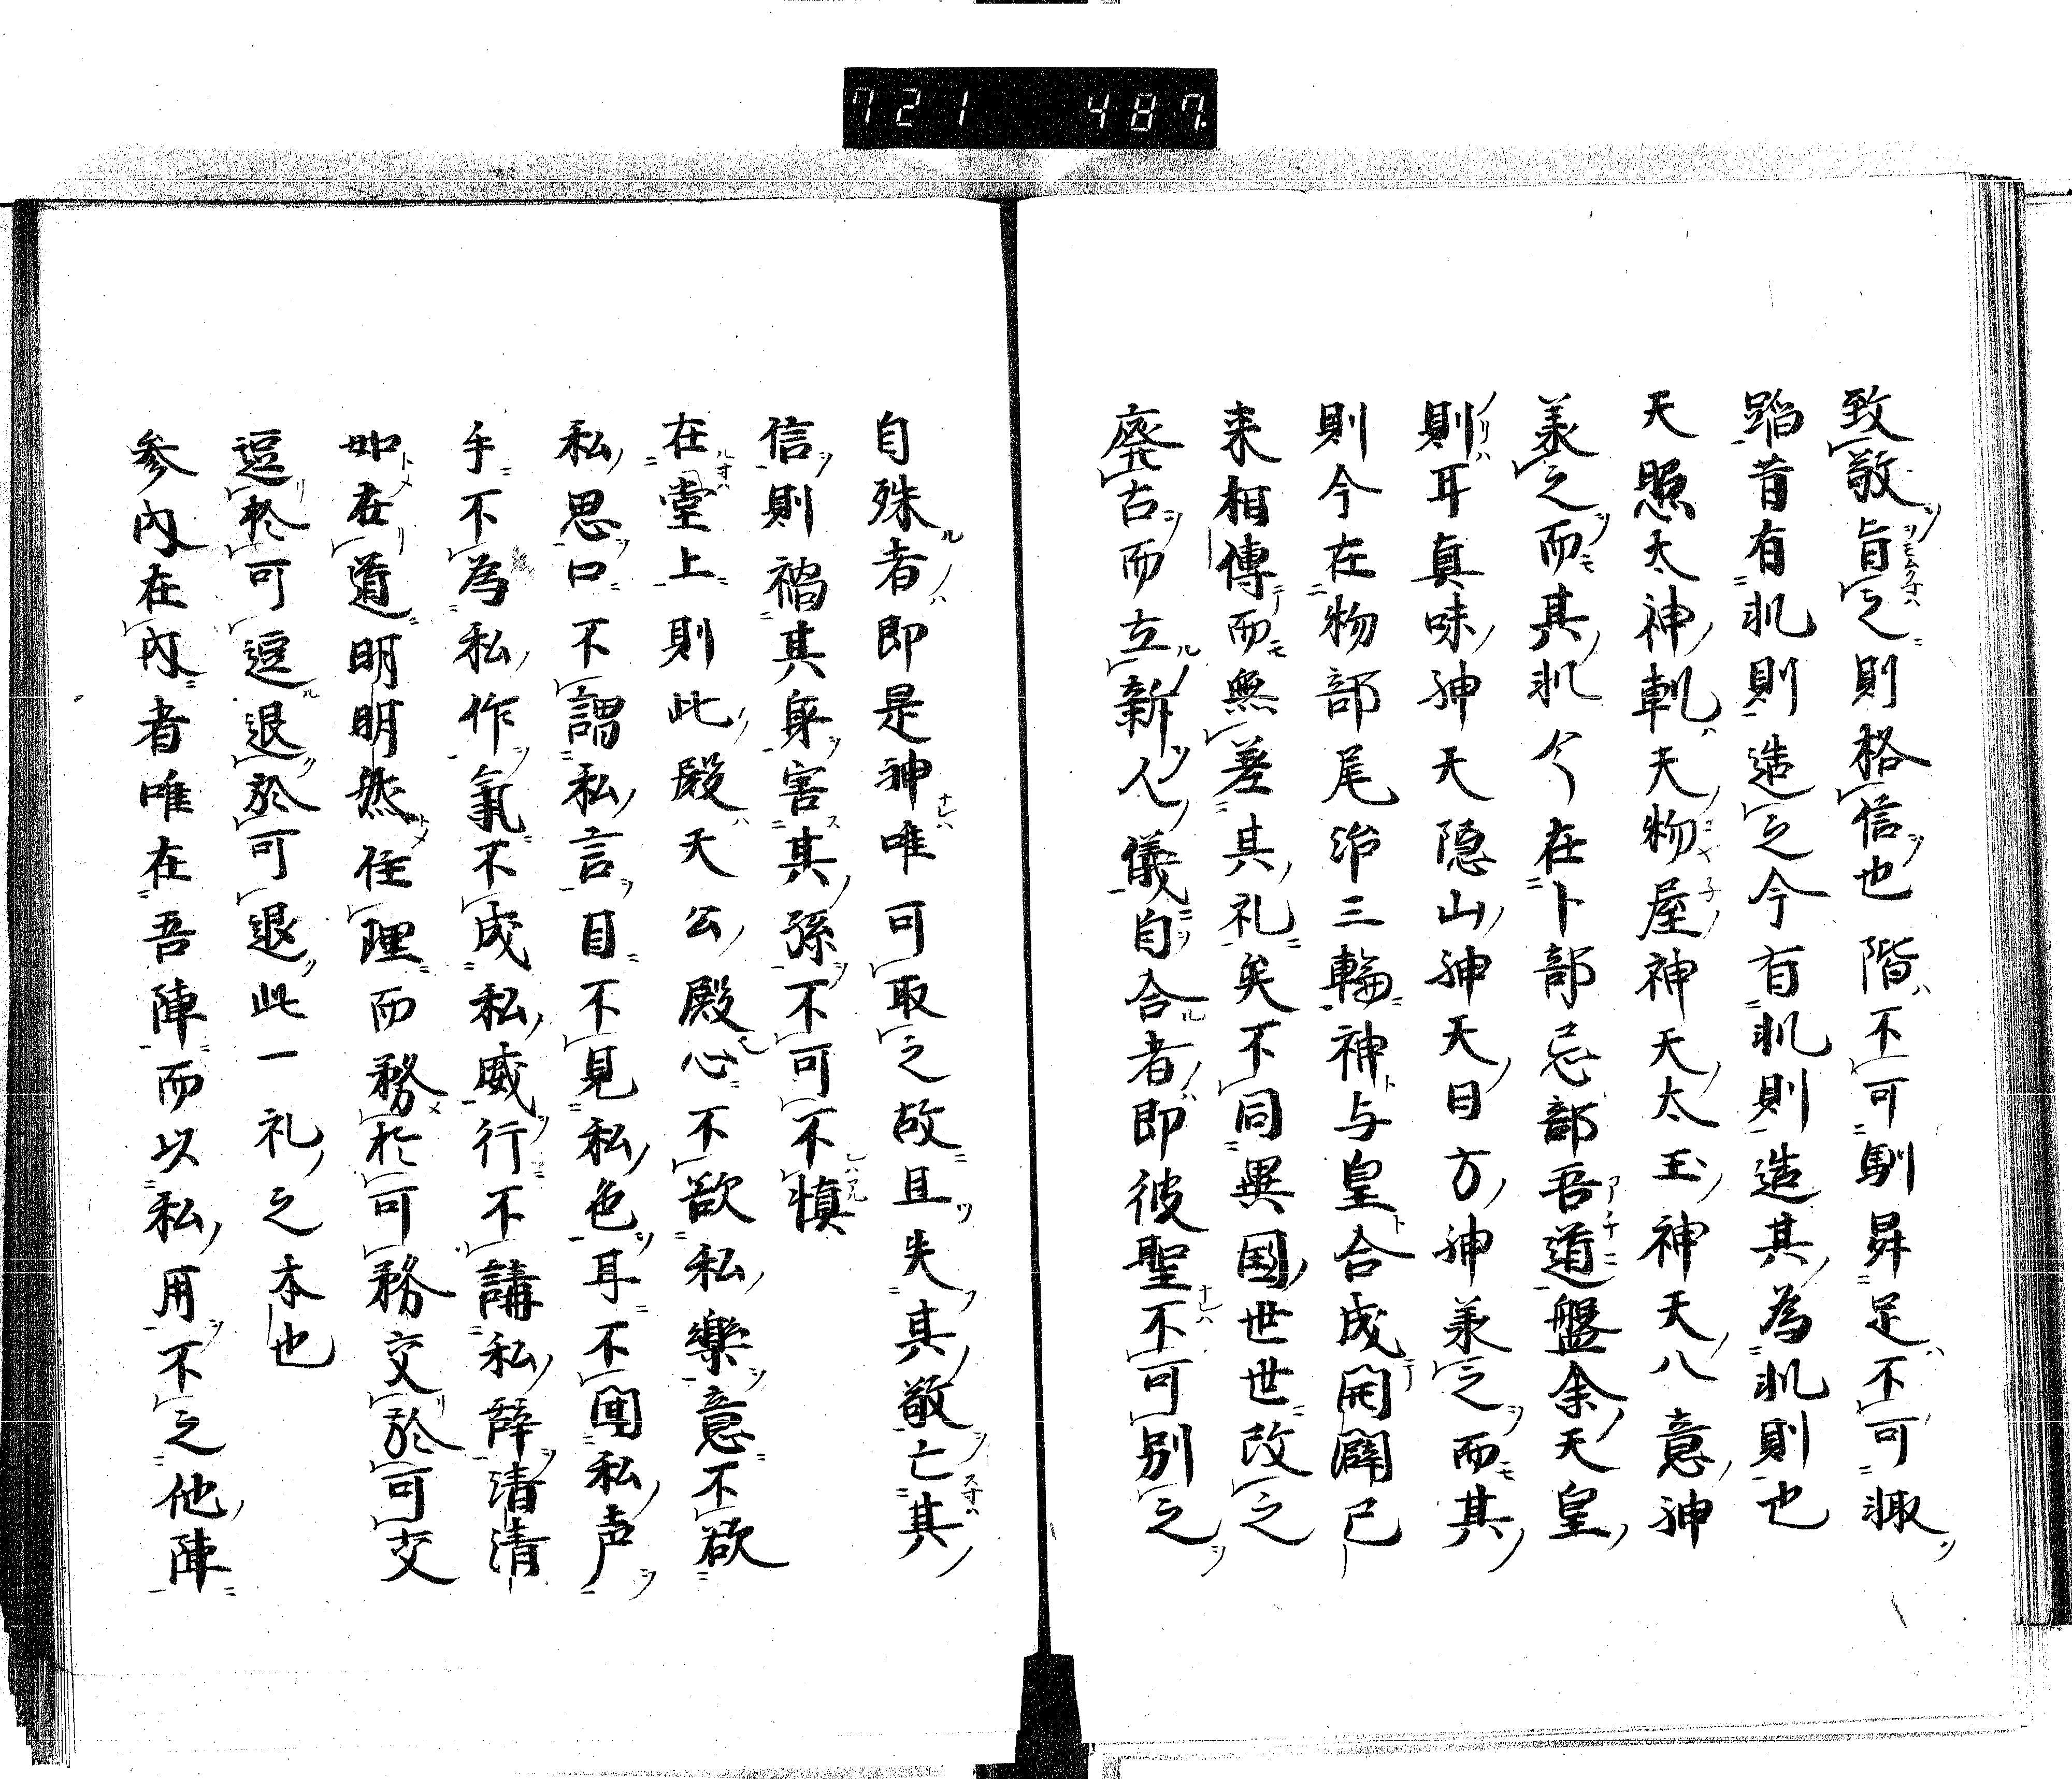 721 487.
致敬旨之則格信也階不可馴昇足不可趣
蹈昔有軌則造之今有軌則造其為軌則也
天照太神軌天物屋神天太玉神天八意神
義之而其軌今在卜部忌部吾道盤余天皇
則耳真味神天隠山神天日方神義之而其
則今在物部尾治三輪神与皇合成開闢已
来相傳而無差其礼矣不同異国世世改之
廃古而立新人儀自合者即彼聖不可別之
自殊者即是神唯可取之故且失其敬亡其
信則禍其身害其孫不可不慎
在堂上則此殿天公殿心不欲私樂意不欲
私思口不謂私言目不見私色耳不聞私声
手不為私作氣不成私威行不講私辞清清
如在道明明然住理而務於可務交於可交
逗於可逗退於可退此一礼之本也
参内在内者唯在吾陣而以私用不之他陣